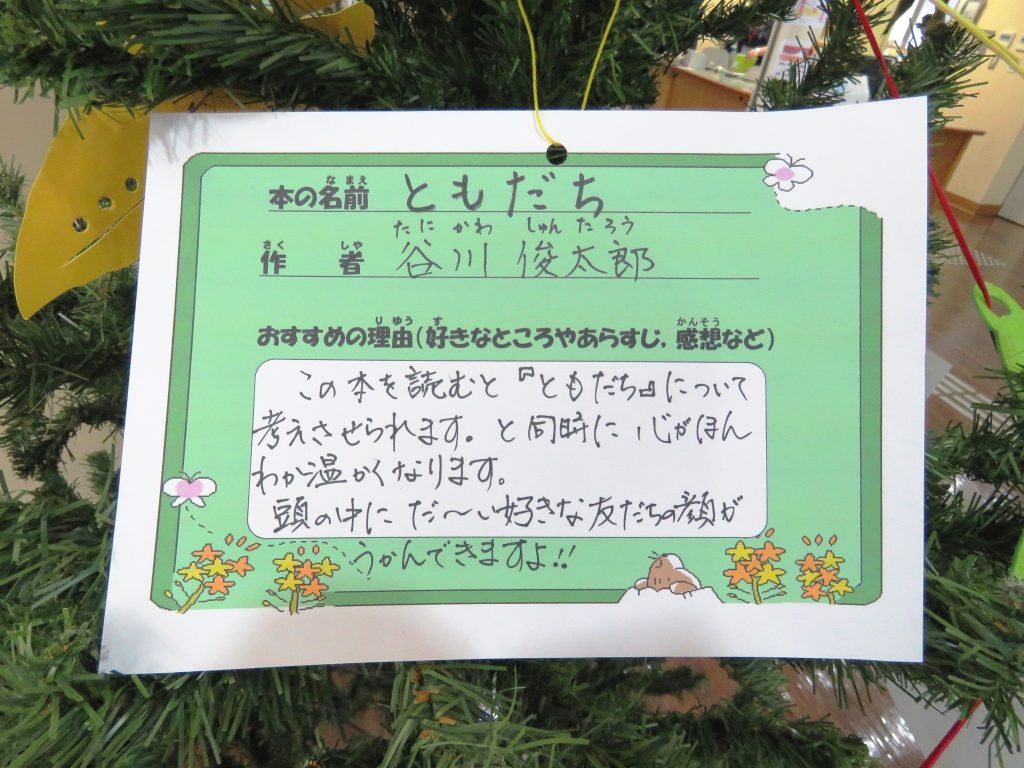 なまえ
本の名前 ともだち
たにかわ しゅんたろう
さくしゃ
作者 谷川 俊太郎
りゆう す かんそう
おすすめの理由(好きなところやあらすじ,感想など)
この本を読むと『ともだち』について
考えさせられます。と同時に心がほん
わか温かくなります。
頭の中に だ〜い好きな友だちの顔が
うかんできますよ!!